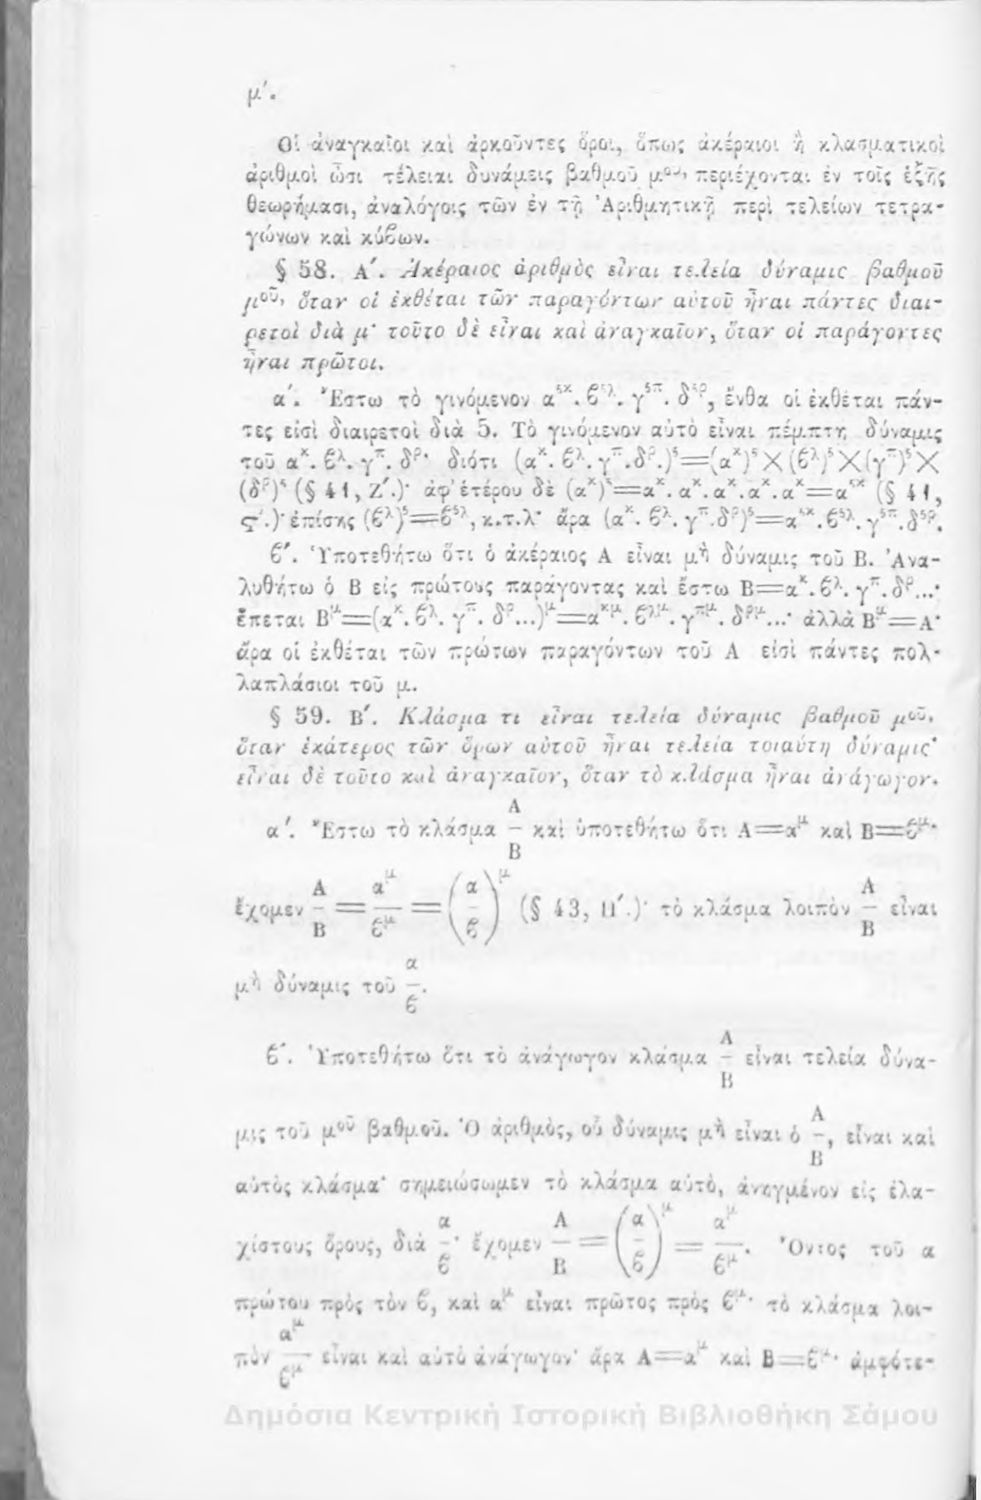 μ΄.
Οἱ ἀναγκαῖοι καὶ ἀρκοῦντες ὅροι, ὅπως ἀκέραιοι ἢ κλασματικοὶ
ἀριθμοὶ ὦσι τέλειαι δυνάμεις βαθμοῦ μοῦ, περιέχονται ἐν τοῖς ἑξῆς
θεωρήμασι, ἀναλόγοις τῶν ἐν τῇ Ἀριθμητικῇ περὶ τελείων τετρα-
γώνων καὶ κύβων.
§ 58. Α΄. Ἀκέραιος ἀριθμὸς εἶναι τελεία δύναμις βαθμοῦ
μοῦ, ὅταν οἱ ἐκθέται τῶν παραγόντων αὐτοῦ ἦναι πάντες διαι-
ρετοὶ διὰ μ· τοῦτο δὲ εἶναι καὶ ἀναγκαῖον, ὅταν οἱ παράγοντες
ἦναι πρῶτοι.
α΄. Ἔστω τὸ γινόμενον α⁵ᵏ. β⁵λ. γ⁵π. δ⁵ρ, ἔνθα οἱ ἐκθέται πάν-
τες εἰσὶ διαιρετοὶ διὰ 5. Τὸ γινόμενον αὐτὸ εἶναι πέμπτη δύναμις
τοῦ ακ. βλ. γπ. δρ· διότι (ακ. βλ. γπ. δρ.)⁵=(ακ)⁵×(βλ)⁵×(γπ)⁵×
(δρ)⁵ (§ 41, Ζ΄.)· ἀφ' ἑτέρου δὲ (ακ)⁵=ακ. ακ. ακ. ακ. ακ=α⁵κ (§ 41,
ϛ΄.)· ἐπίσης (βλ)⁵=β⁵λ, κ.τ.λ· ἄρα (ακ. βλ. γπ. δρ)⁵=α⁵κ. β⁵λ. γ⁵π. δ⁵ρ.
β΄. Ὑποτεθήτω ὅτι ὁ ἀκέραιος Α εἶναι μὴ δύναμις τοῦ Β. Ἀνα-
λυθήτω ὁ Β εἰς πρώτους παράγοντας καὶ ἔστω Β=ακ. βλ. γπ. δρ...·
ἕπεται Βμ=(ακ. βλ. γπ. δρ...)μ=ακμ. βλμ. γπμ. δρμ...· ἀλλὰ Βμ=Α·
ἄρα οἱ ἐκθέται τῶν πρώτων παραγόντων τοῦ Α εἰσὶ πάντες πολ-
λαπλάσιοι τοῦ μ.
§ 59. Β΄. Κλάσμα τι εἶναι τελεία δύναμις βαθμοῦ μοῦ,
ὅταν ἑκάτερος τῶν ὅρων αὐτοῦ ἦναι τελεία τοιαύτη δύναμις·
εἶναι δὲ τοῦτο καὶ ἀναγκαῖον, ὅταν τὸ κλάσμα ἦναι ἀνάγωγον.
α΄. Ἔστω τὸ κλάσμα Α/Β καὶ ὑποτεθήτω ὅτι Α=αμ καὶ Β=βμ·
ἔχομεν Α/Β = αμ/βμ = (α/β)μ (§ 43, Η΄.)· τὸ κλάσμα λοιπὸν Α/Β εἶναι
μὴ δύναμις τοῦ α/β.
β΄. Ὑποτεθήτω ὅτι τὸ ἀνάγωγον κλάσμα Α/Β εἶναι τελεία δύνα-
μις τοῦ μοῦ βαθμοῦ. Ὁ ἀριθμὸς, οὗ δύναμις μὴ εἶναι ὁ Α/Β, εἶναι καὶ
αὐτὸς κλάσμα· σημειώσωμεν τὸ κλάσμα αὐτὸ, ἀνηγμένον εἰς ἐλα-
χίστους ὅρους, διὰ α/β· ἔχομεν Α/Β = (α/β)μ = αμ/βμ. Ὄντος τοῦ α
πρώτου πρὸς τὸν β, καὶ αμ εἶναι πρῶτος πρὸς βμ· τὸ κλάσμα λοι-
πὸν αμ/βμ εἶναι καὶ αὐτὸ ἀνάγωγον· ἄρα Α=αμ καὶ Β=βμ· ἀμφότε-
Δημόσια Κεντρική Ιστορική Βιβλιοθήκη Σάμου